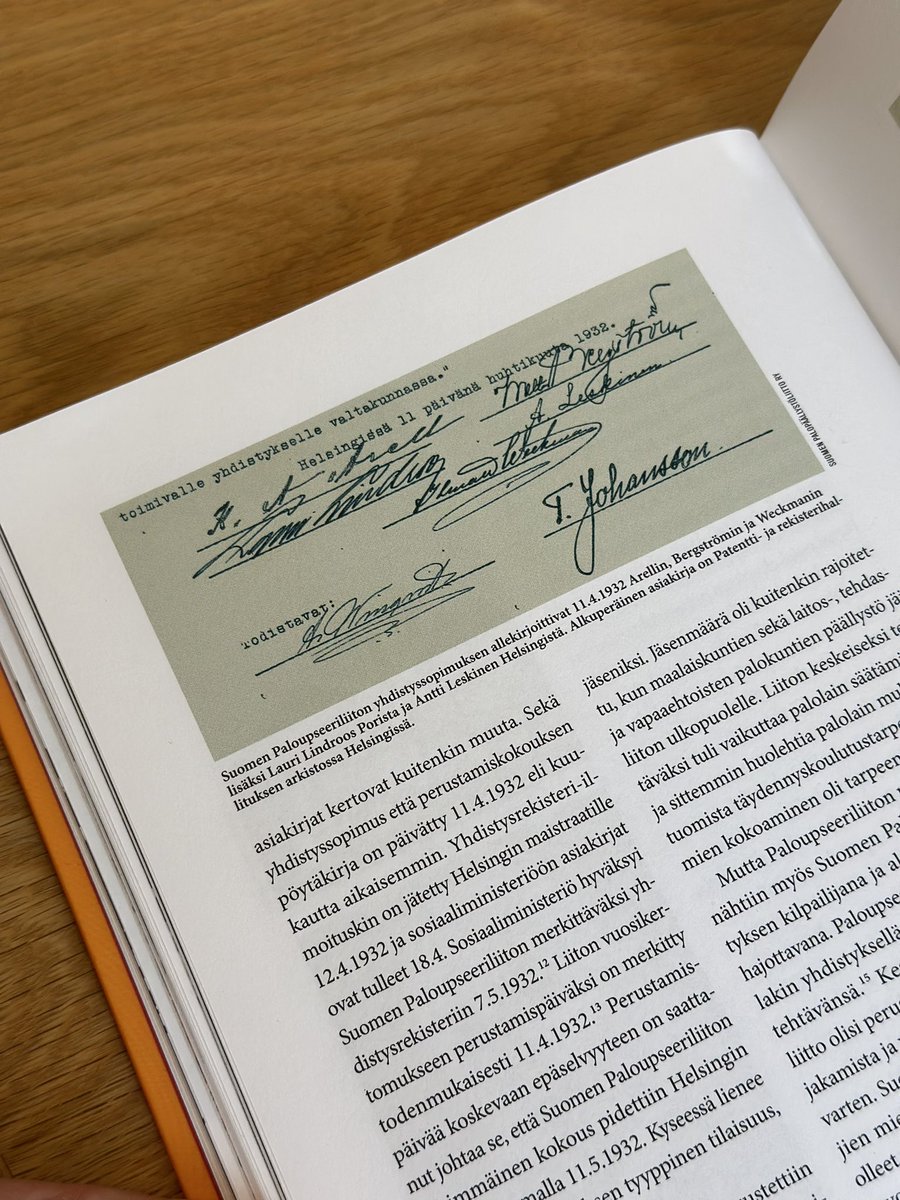 toimivalle yhdistykselle valtakunnassa."
Helsingissä 11 päivänä huhtikuuta 1932.
H. A. Arell
A. Leskinen
T. Johansson
Todistavat:
SUOMEN PALOPÄÄLLYSTÖLIITTO RY
Suomen Paloupseeriliiton yhdistyssopimuksen allekirjoittivat 11.4.1932 Arellin, Bergströmin ja Weckmanin
lisäksi Lauri Lindroos Porista ja Antti Leskinen Helsingistä. Alkuperäinen asiakirja on Patentti- ja rekisterihal-
lituksen arkistossa Helsingissä.
asiakirjat kertovat kuitenkin muuta. Sekä
yhdistyssopimus että perustamiskokouksen
pöytäkirja on päivätty 11.4.1932 eli kuu-
kautta aikaisemmin. Yhdistysrekisteri-il-
moituskin on jätetty Helsingin maistraatille
12.4.1932 ja sosiaaliministeriöön asiakirjat
ovat tulleet 18.4. Sosiaaliministeriö hyväksyi
Suomen Paloupseeriliiton merkittäväksi yh-
distysrekisteriin 7.5.1932.12 Liiton vuosiker-
tomukseen perustamispäiväksi on merkitty
todenmukaisesti 11.4.1932.13 Perustamis-
päivää koskevaan epäselvyyteen on saatta-
nut johtaa se, että Suomen Paloupseeriliiton
immäinen kokous pidettiin Helsingin
malla 11.5.1932. Kyseessä lienee
sen tyyppinen tilaisuus,
ustettiin
jäseniksi. Jäsenmäärä oli kuitenkin rajoitet-
tu, kun maalaiskuntien sekä laitos-, tehdas-
ja vapaaehtoisten palokuntien päällystö jä
liiton ulkopuolelle. Liiton keskeiseksi te
täväksi tuli vaikuttaa palolain säätämi
ja sittemmin huolehtia palolain mu
tuomista täydennyskoulutustarpe
mien kokoaminen oli tarpeen
Mutta Paloupseeriliiton
nähtiin myös Suomen Pal
tyksen kilpailijana ja al
hajottavana. Paloupse
lakin yhdistyksellä
tehtävänsä.15 Ke
liitto olisi peru
jakamista ja
varten. Su
jien mie
olleet